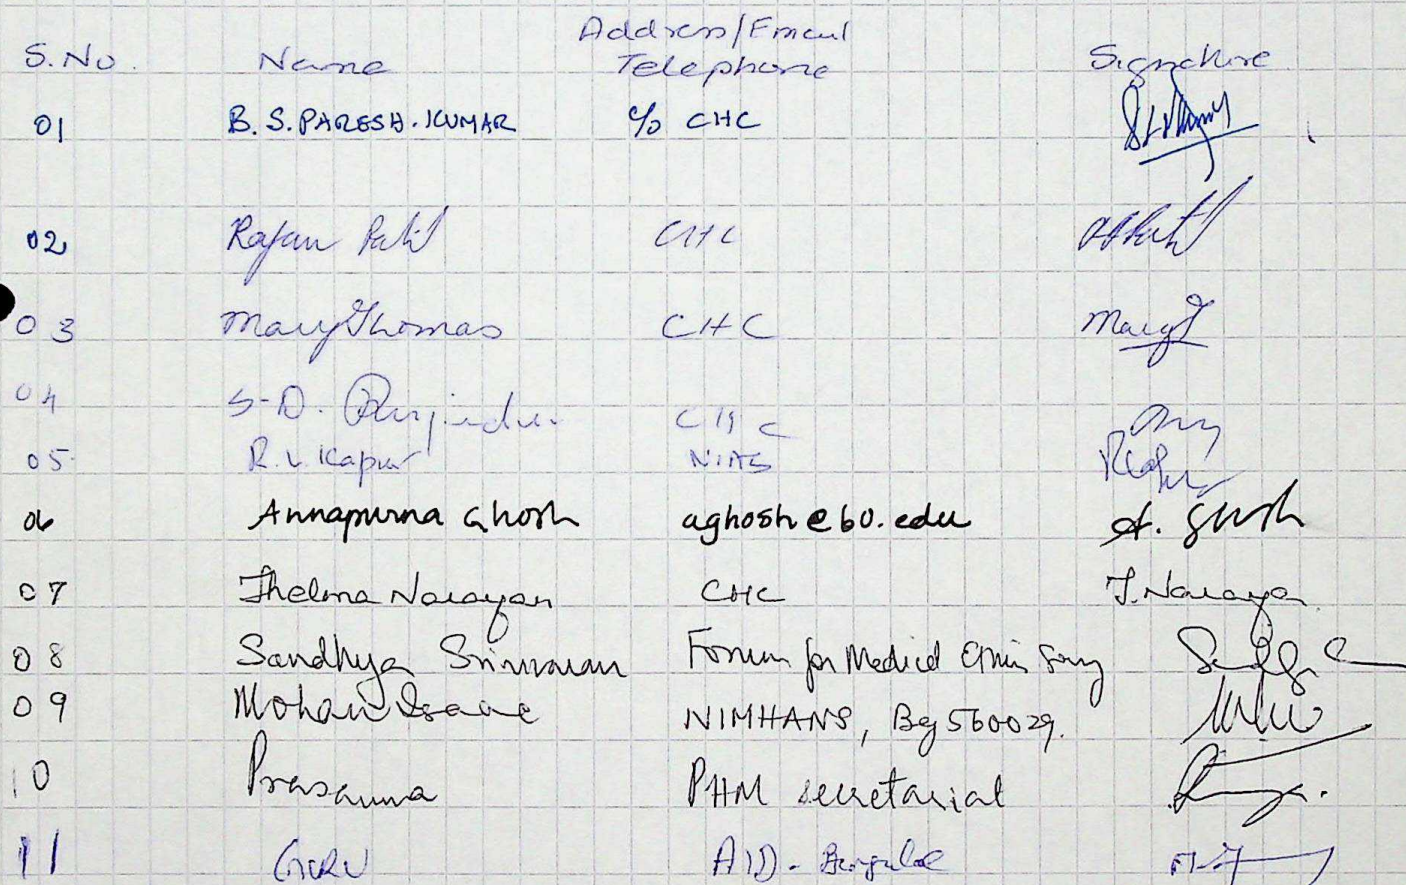 S.No. Name Address/Email Telephone Signature
01 B.S.PARESH.KUMAR c/o CHC
02 Rajan Patil CHC
03 Mary Thomas CHC Mary T
04 S-D. Rajendran CHC
05 R.L. Kapur NIAS
06 Annapurna Ghosh aghosh@bu.edu A. Ghosh
07 Thelma Narayan CHC T. Narayan
08 Sandhya Srinivasan Forum for Medical Ethics Socy
09 Mohan Isaac NIMHANS, Bg 560029.
10 Prasanna PHM secretariat
11 GURU AID-